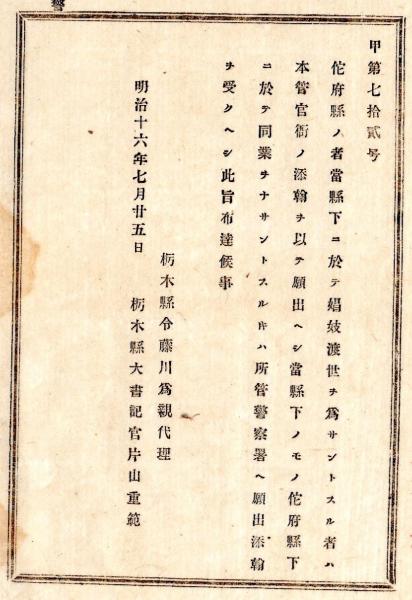 警
甲第七拾貳号
佗府縣ノ者當縣下ニ於テ娼妓渡世ヲ爲サントスル者ハ
本管官衙ノ添翰ヲ以テ願出ヘシ當縣下ノモノ佗府縣下
ニ於テ同業ヲナサントスル𪜈ハ所管警察署ヘ願出添翰
ヲ受クヘシ此旨布達候事
明治十六年七月廿五日
栃木縣令藤川爲親代理
栃木縣大書記官片山重範